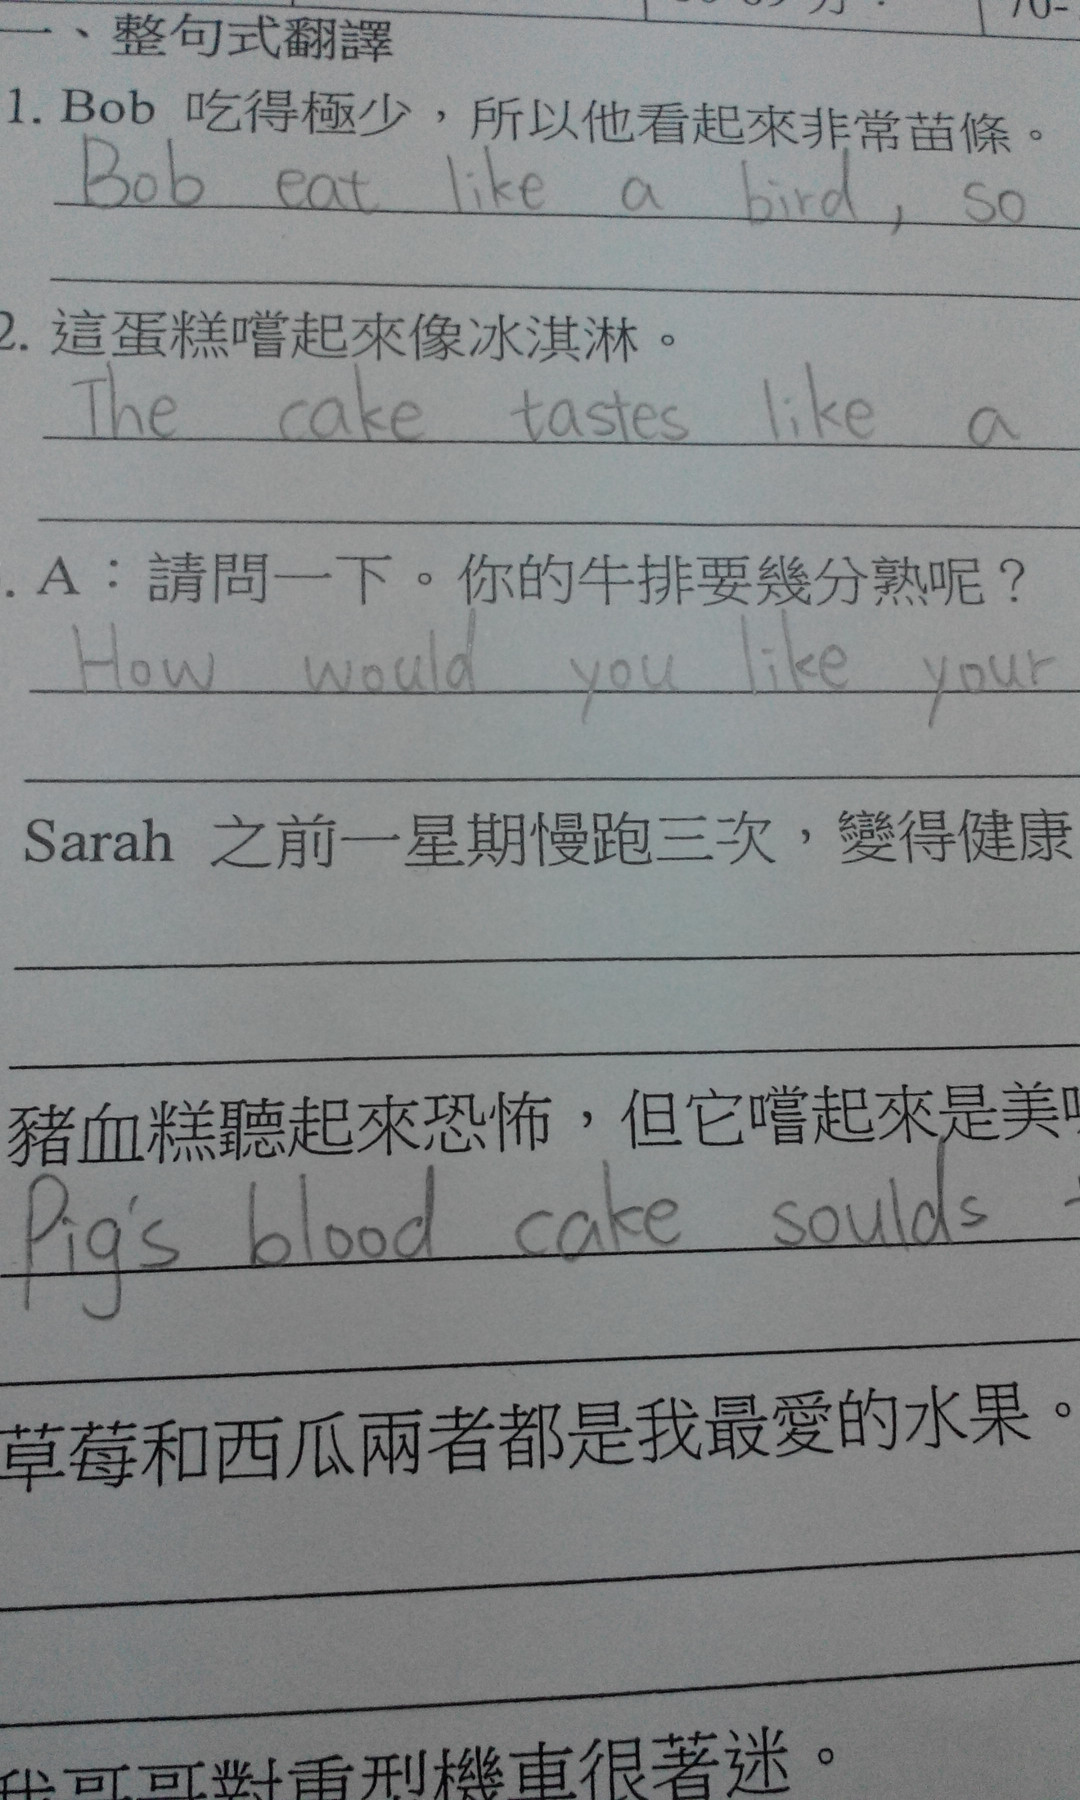 一、整句式翻譯
1. Bob 吃得極少，所以他看起來非常苗條。
Bob eat like a bird, so
2. 這蛋糕嚐起來像冰淇淋。
The cake tastes like a
. A：請問一下。你的牛排要幾分熟呢？
How would you like your
Sarah 之前一星期慢跑三次，變得健康
豬血糕聽起來恐怖，但它嚐起來是美味
Pig's blood cake soulds
草莓和西瓜兩者都是我最愛的水果。
我哥哥對重型機車很著迷。